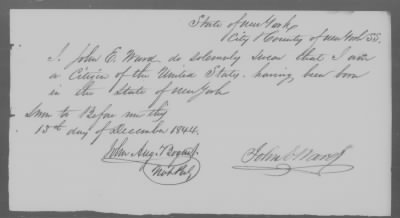 State of New York
City & County of New York SS.
I. John E. Ward do solemnly swear that I am
a Citizen of the United States. having been born
in the State of New York
Sworn to Before me this
13th day of December 1844.
John Aug.
Not. Pub.
John E Ward